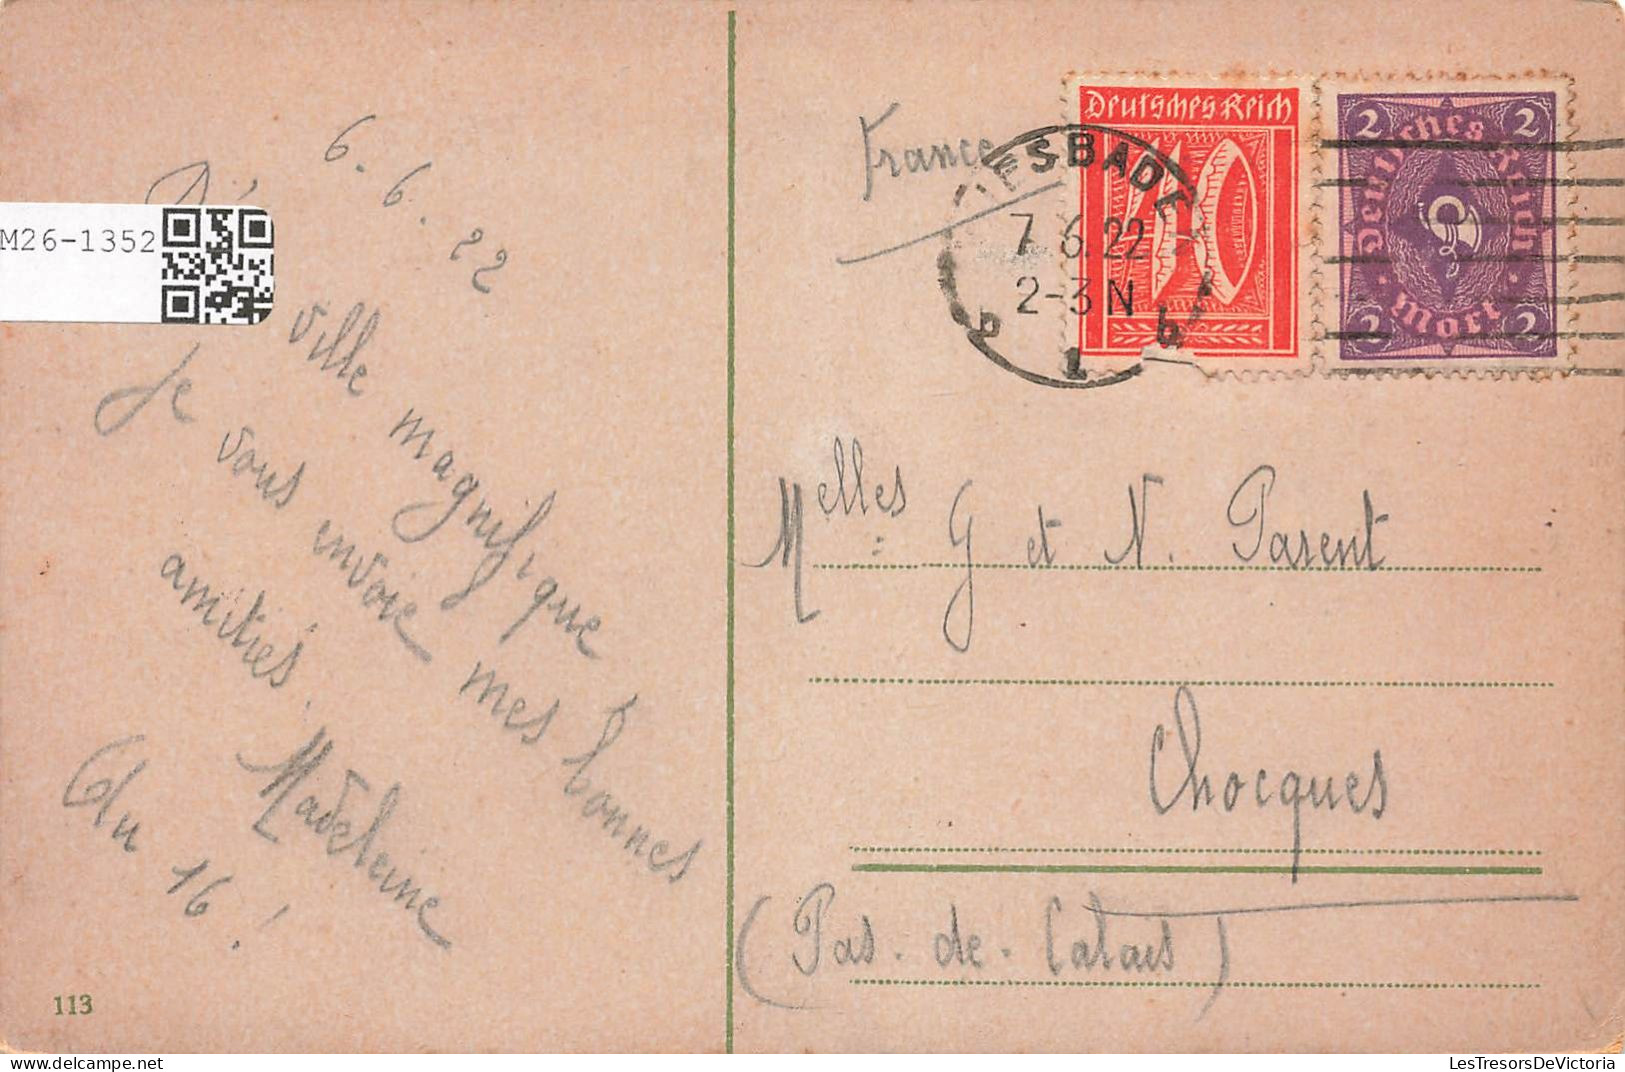 6.6.22
M26-1352
ville magnifique
Je vous envoie mes bonnes
amitiés.
Madeleine
du 16!
113
France
WIESBADEN
7.6.22
2-3 N
b 1 b
Deutsches Reich
10
2 2
Deutsches Reich
Mark
2 2
Melles G et N. Parent
Chocques
(Pas-de-Calais)
LesTresorsDeVictoria